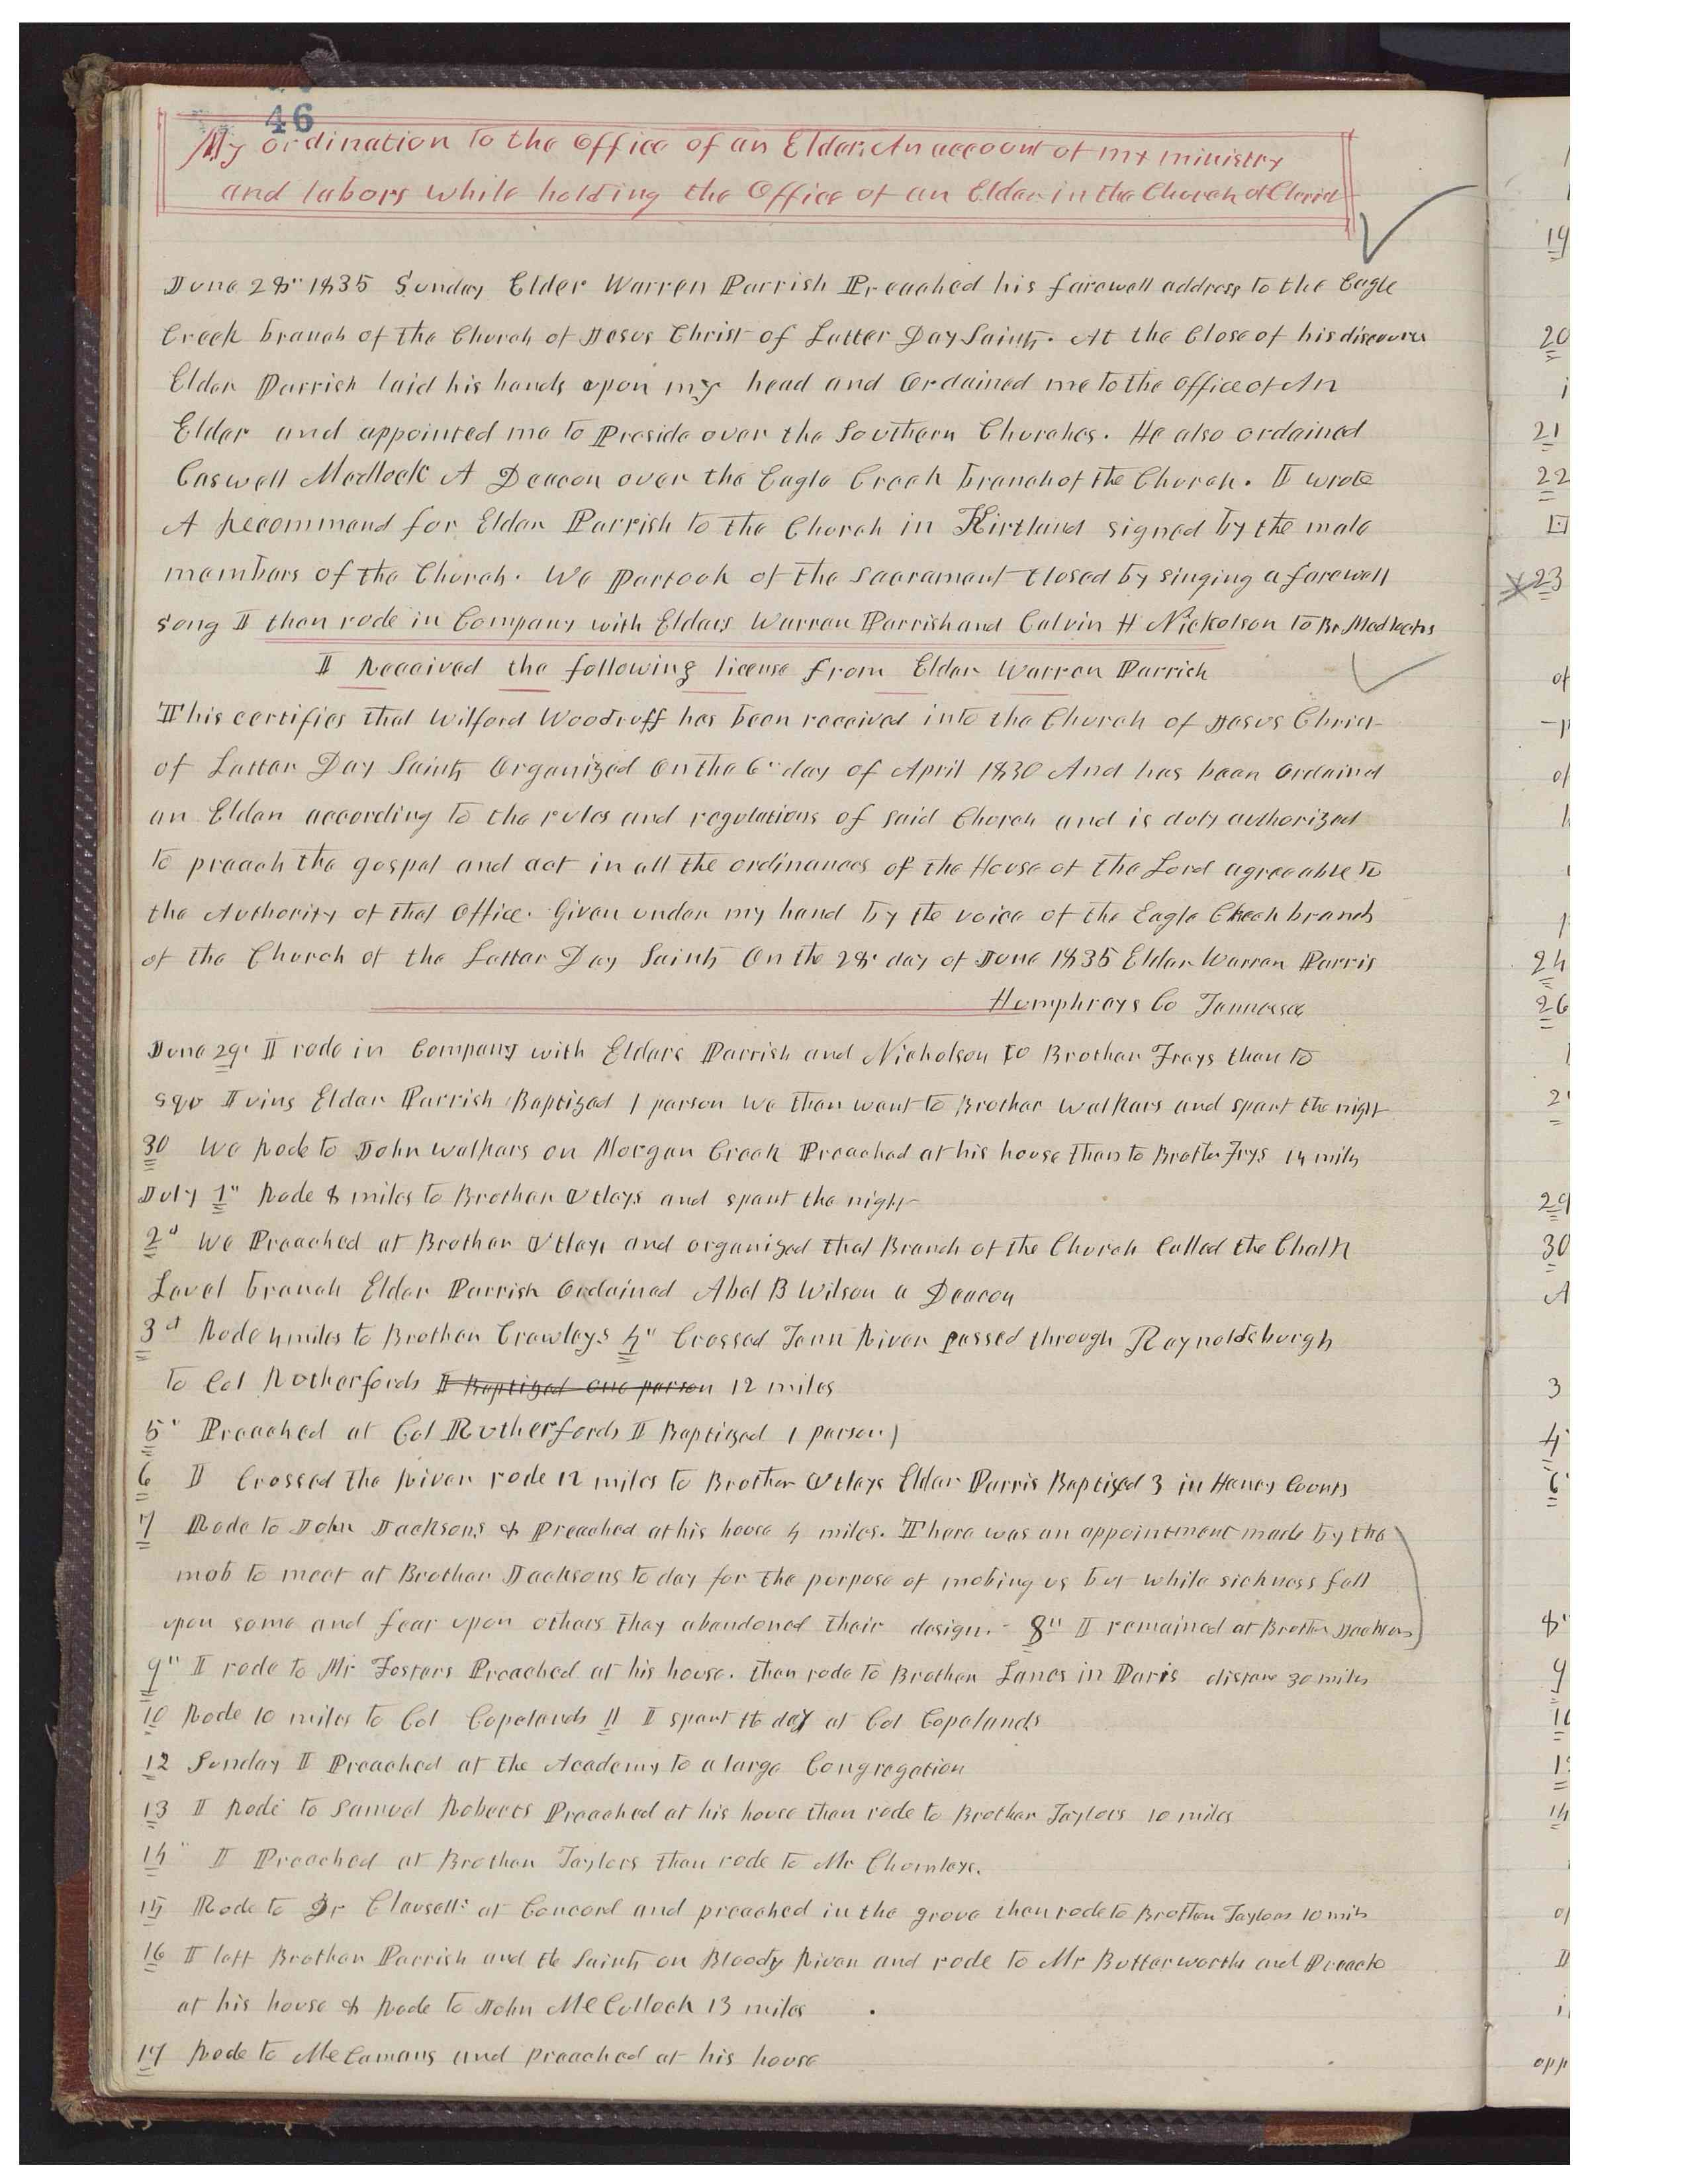 46
My ordination to the office of an Elder. An account of my ministry
and labors while holding the Office of an Elder in the Church of Christ
June 28" 1835 Sunday Elder Warren Parrish Preached his farewell address to the Eagle
Creek branch of the Church of Jesus Christ of Latter Day Saints. At the Close of his discours
Elder Parrish laid his hands upon my head and Ordained me to the office of An
Elder and appointed me to Preside over the Southern Churches. He also ordained
Caswell Medlock A Deacon over the Eagle Creek branch of the Church. I wrote
A Recommend for Elder Parrish to the Church in Kirtland signed by the male
members of the Church. We Partook of the Sacrament Closed by singing a farewell
song I then rode in Company with Elders Warren Parrish and Calvin H Nickolson to Br Medlocks
I Received the following license from Elder Warren Parrish
This certifies that Wilford Woodruff has been received into the Church of Jesus Christ
of Latter Day Saints Organized On the 6" day of April 1830 And has been Ordaind
an Elder according to the rules and regulations of said Church and is duly authorized
to preach the gospel and act in all the ordinances of the House of the Lord agreeable to
the Authority of that Office. Given under my hand by the voice of the Eagle Creek branch
of the Church of the Latter Day Saints On the 28" day of June 1835 Elder Warren Parris
Humphreys Co Tennessee
June 29" I rode in Company with Elders Parrish and Nicholson to Brother Frays then to
Sqr Ivins Elder Parrish Baptized 1 person We then went to Brother Walkers and spent the night
30 We Rode to John Walkers on Morgan Creek Preached at his house then to Brother Frys 14 miles
July 1" Rode 8 miles to Brother Utleys and spent the night
2d We Preached at Brother Utleys and organized that Branch of the Church Called the Chalk
Level branch Elder Parrish Ordained Abel B Wilson a Deacon
3d Rode 4 miles to Brother Crawleys 4" Crossed Tenn River passed through Reynoldsburgh
to Col Rutherfords I Baptized one person 12 miles
5" Preached at Col Rutherfords I Baptized 1 person)
6 I Crossed the River rode 12 miles to Brother Utleys Elder Parris Baptized 3 in Henry County
7 Rode to John Jacksons & Preached at his house 4 miles. There was an appointment made by the
mob to meet at Brother Jacksons to day for the purpose of mobing us but while sickness fell
upon some and fear upon others they abandoned their design. 8" I remained at Brother Jacksons
9" I rode to Mr Fosters Preached at his house. then rode to Brother Lanes in Paris distane 30 miles
10 Rode 10 miles to Col Copelands 11 I spent the day at Col Copelands
12 Sunday I Preached at the Academy to a large Congregation
13 I Rode to Samuel Roberts Preached at his house then rode to Brother Taylors 10 miles
14" I Preached at Brother Taylors then rode to Mr Chumleys.
15 Rode to Dr Clausells at Concord and preached in the grove then rode to Brother Taylors 10 mils
16 I left Brother Parrish and the Saints on Bloody River and rode to Mr Butterworths and Preach
at his house & Rode to John McCulloch 13 miles
17 Rode to McCamans and preached at his house
19
20
21
22
23
of
of
24
26
29
30
A
3
4
6
8"
9
14
of
opp